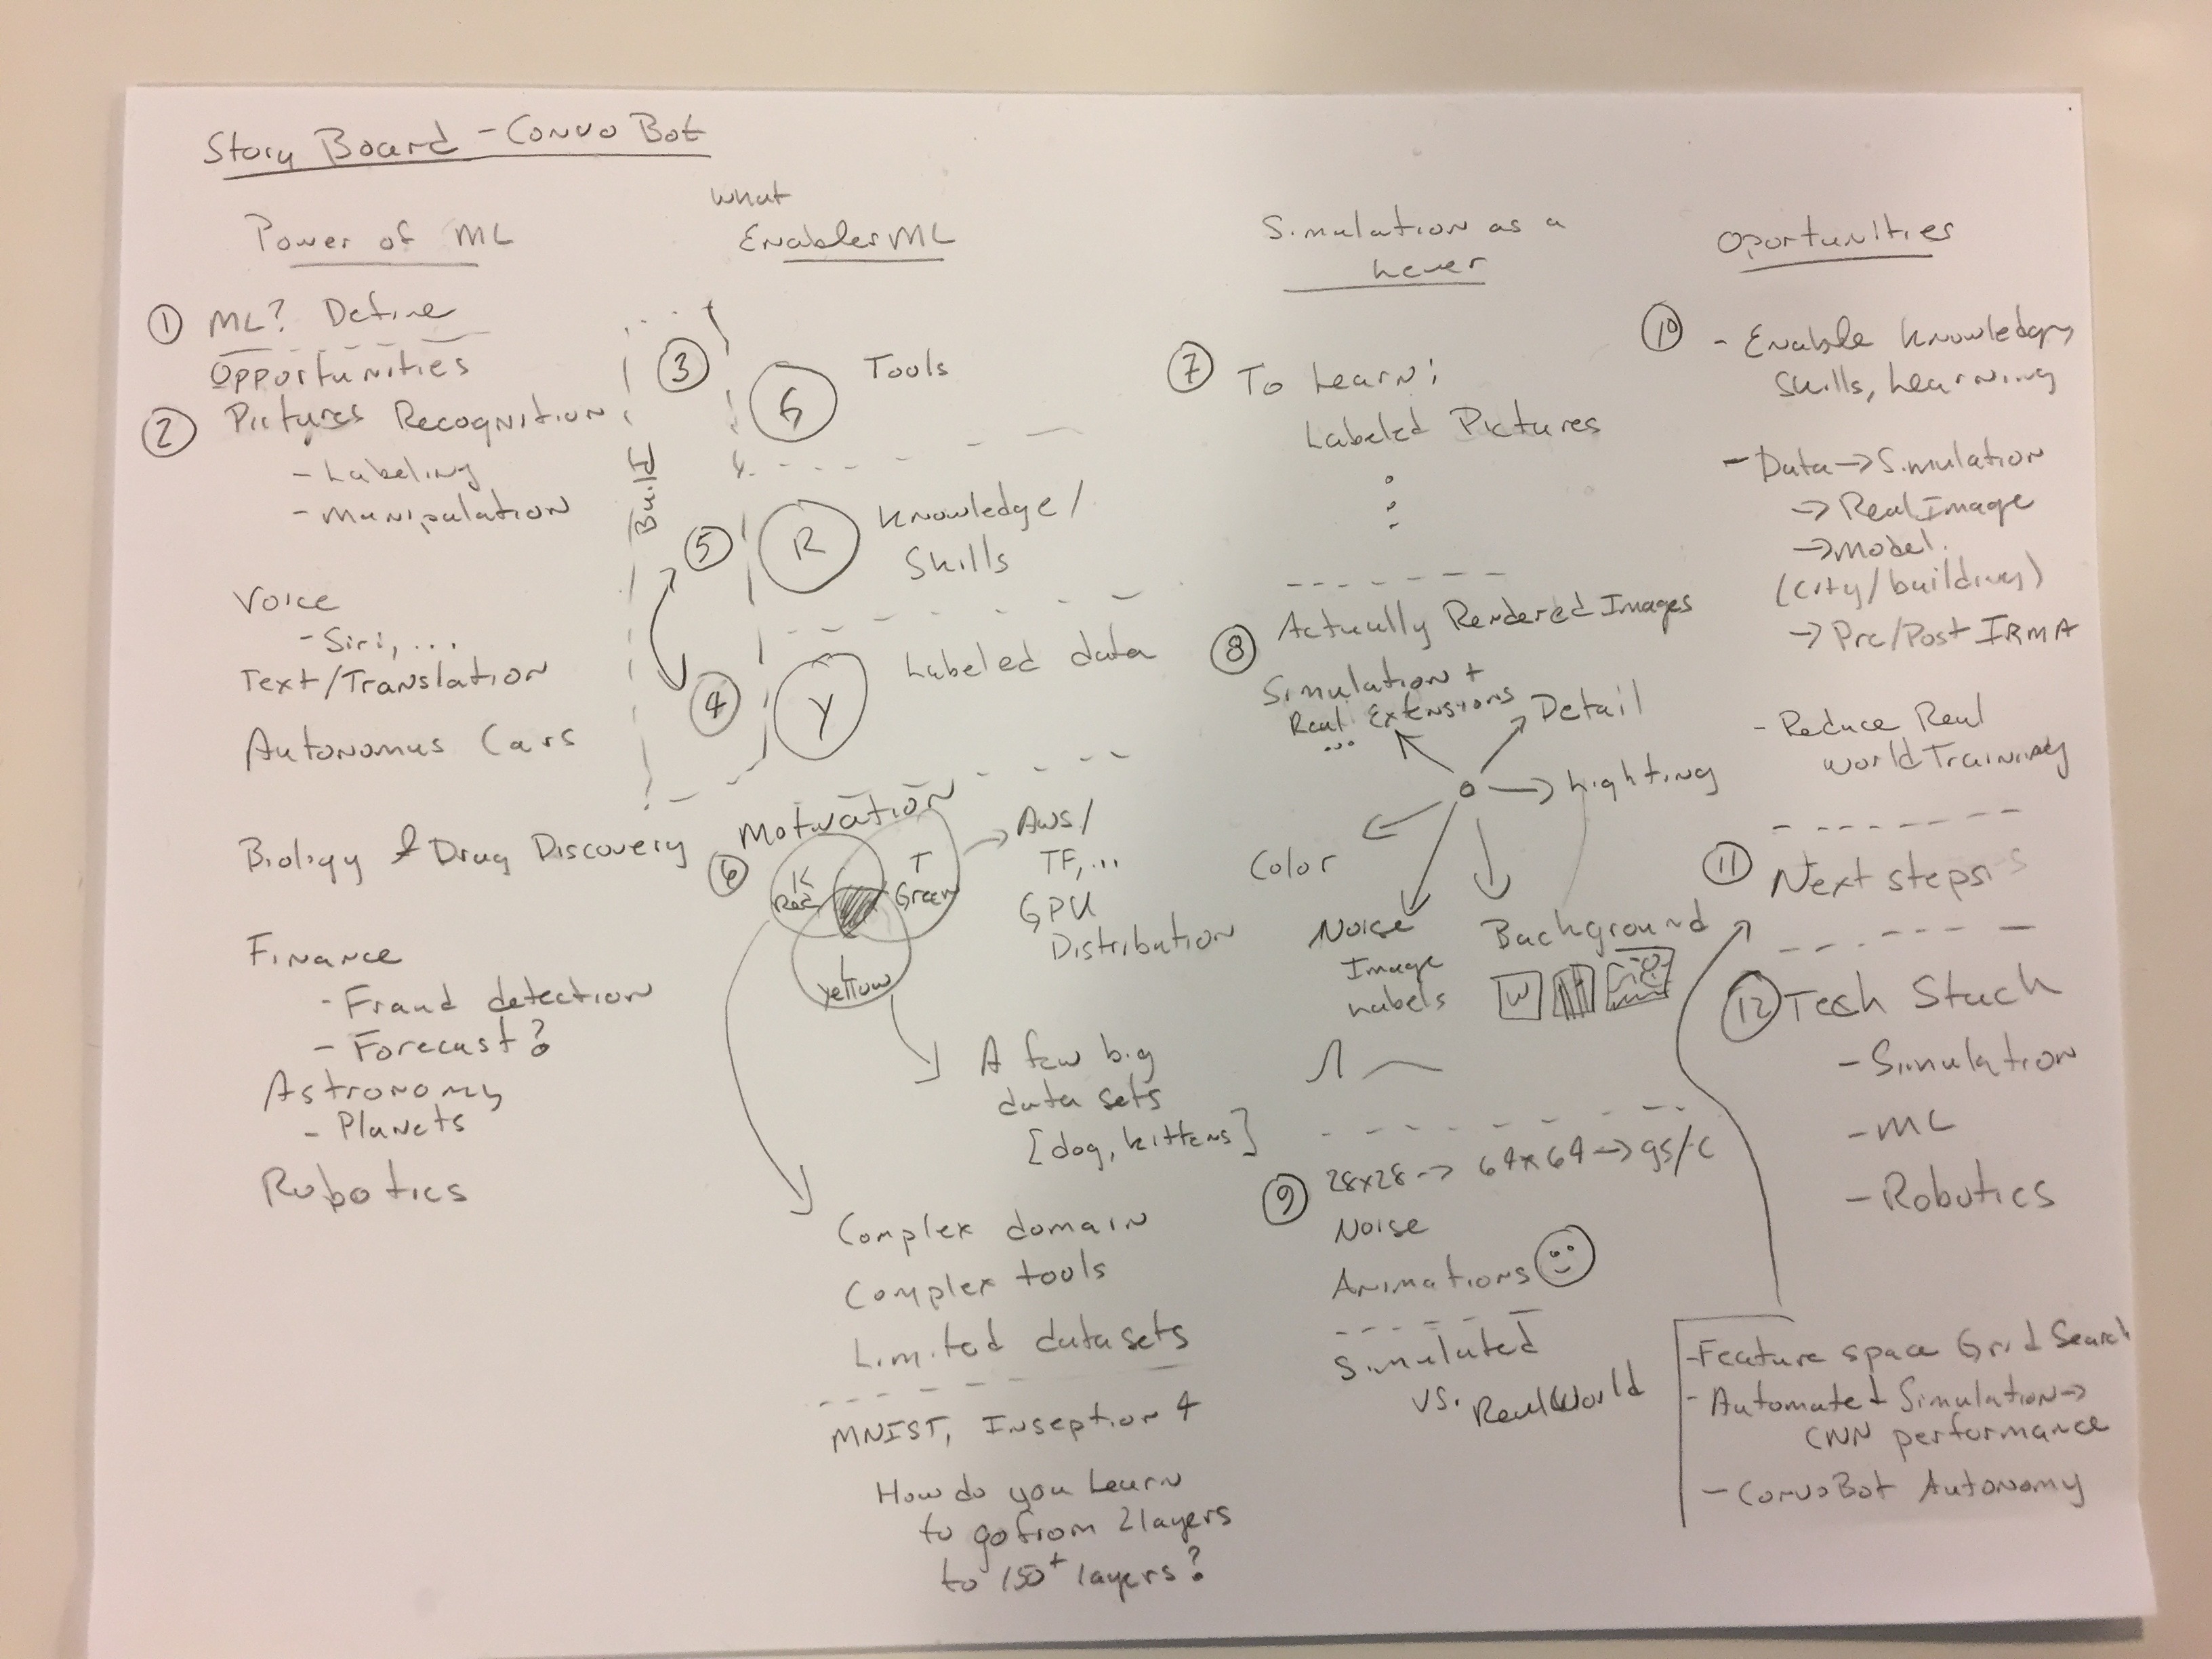 Story Board - Convo Bot
Power of ML
① ML? Define
Opportunities
② Pictures Recognition
- Labeling
- Manipulation
Voice
- Siri, ...
Text/Translation
Autonomus Cars
Biology & Drug Discovery
Finance
- Fraud detection
- Forecast?
Astronomy
- Planets
Robotics
What
Enables ML
Build
③ G Tools
⑤ R Knowledge/
Skills
④ Y Labeled data
⑥ Motivation
K
Red
T
Green
L
Yellow
AWS/
TF, ...
GPU
Distribution
A few big
data sets
[dog, kittens]
Complex domain
Complex tools
Limited datasets
MNIST, Inseption 4
How do you Learn
to go from 2 layers
to 150+ layers?
Simulation as a
Lever
⑦ To Learn:
Labeled Pictures
⑧ Actually Rendered Images
Simulation +
Real Extensions
...
Detail
Lighting
Color
Noise
Image
Labels
Background
W
⑨ 28x28 → 64x64 → gs/c
Noise
Animations
Simulated
vs. Real World
Oportunities
⑩ - Enable Knowledge,
Skills, Learning
- Data → Simulation
→ Real Image
→ Model
(City/buildings)
→ Pre/Post IRMA
- Reduce Real
World Training
⑪ Next steps
⑫ Tech Stack
- Simulation
- ML
- Robotics
- Feature space Grid Search
- Automated Simulation →
CNN performance
- ConvoBot Autonomy